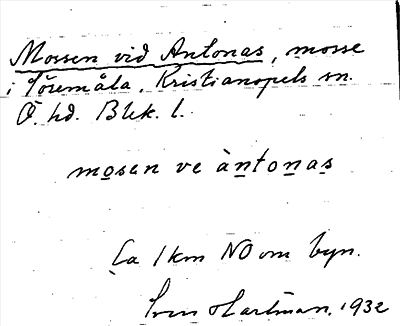 Mossen vid Antonas, mosse
i Töremåla, Kristianopels sn.
Ö. hd. Blek. l.
mosen ve àntonas
Ca 1 km NO om byn.
Sven Hartman, 1932